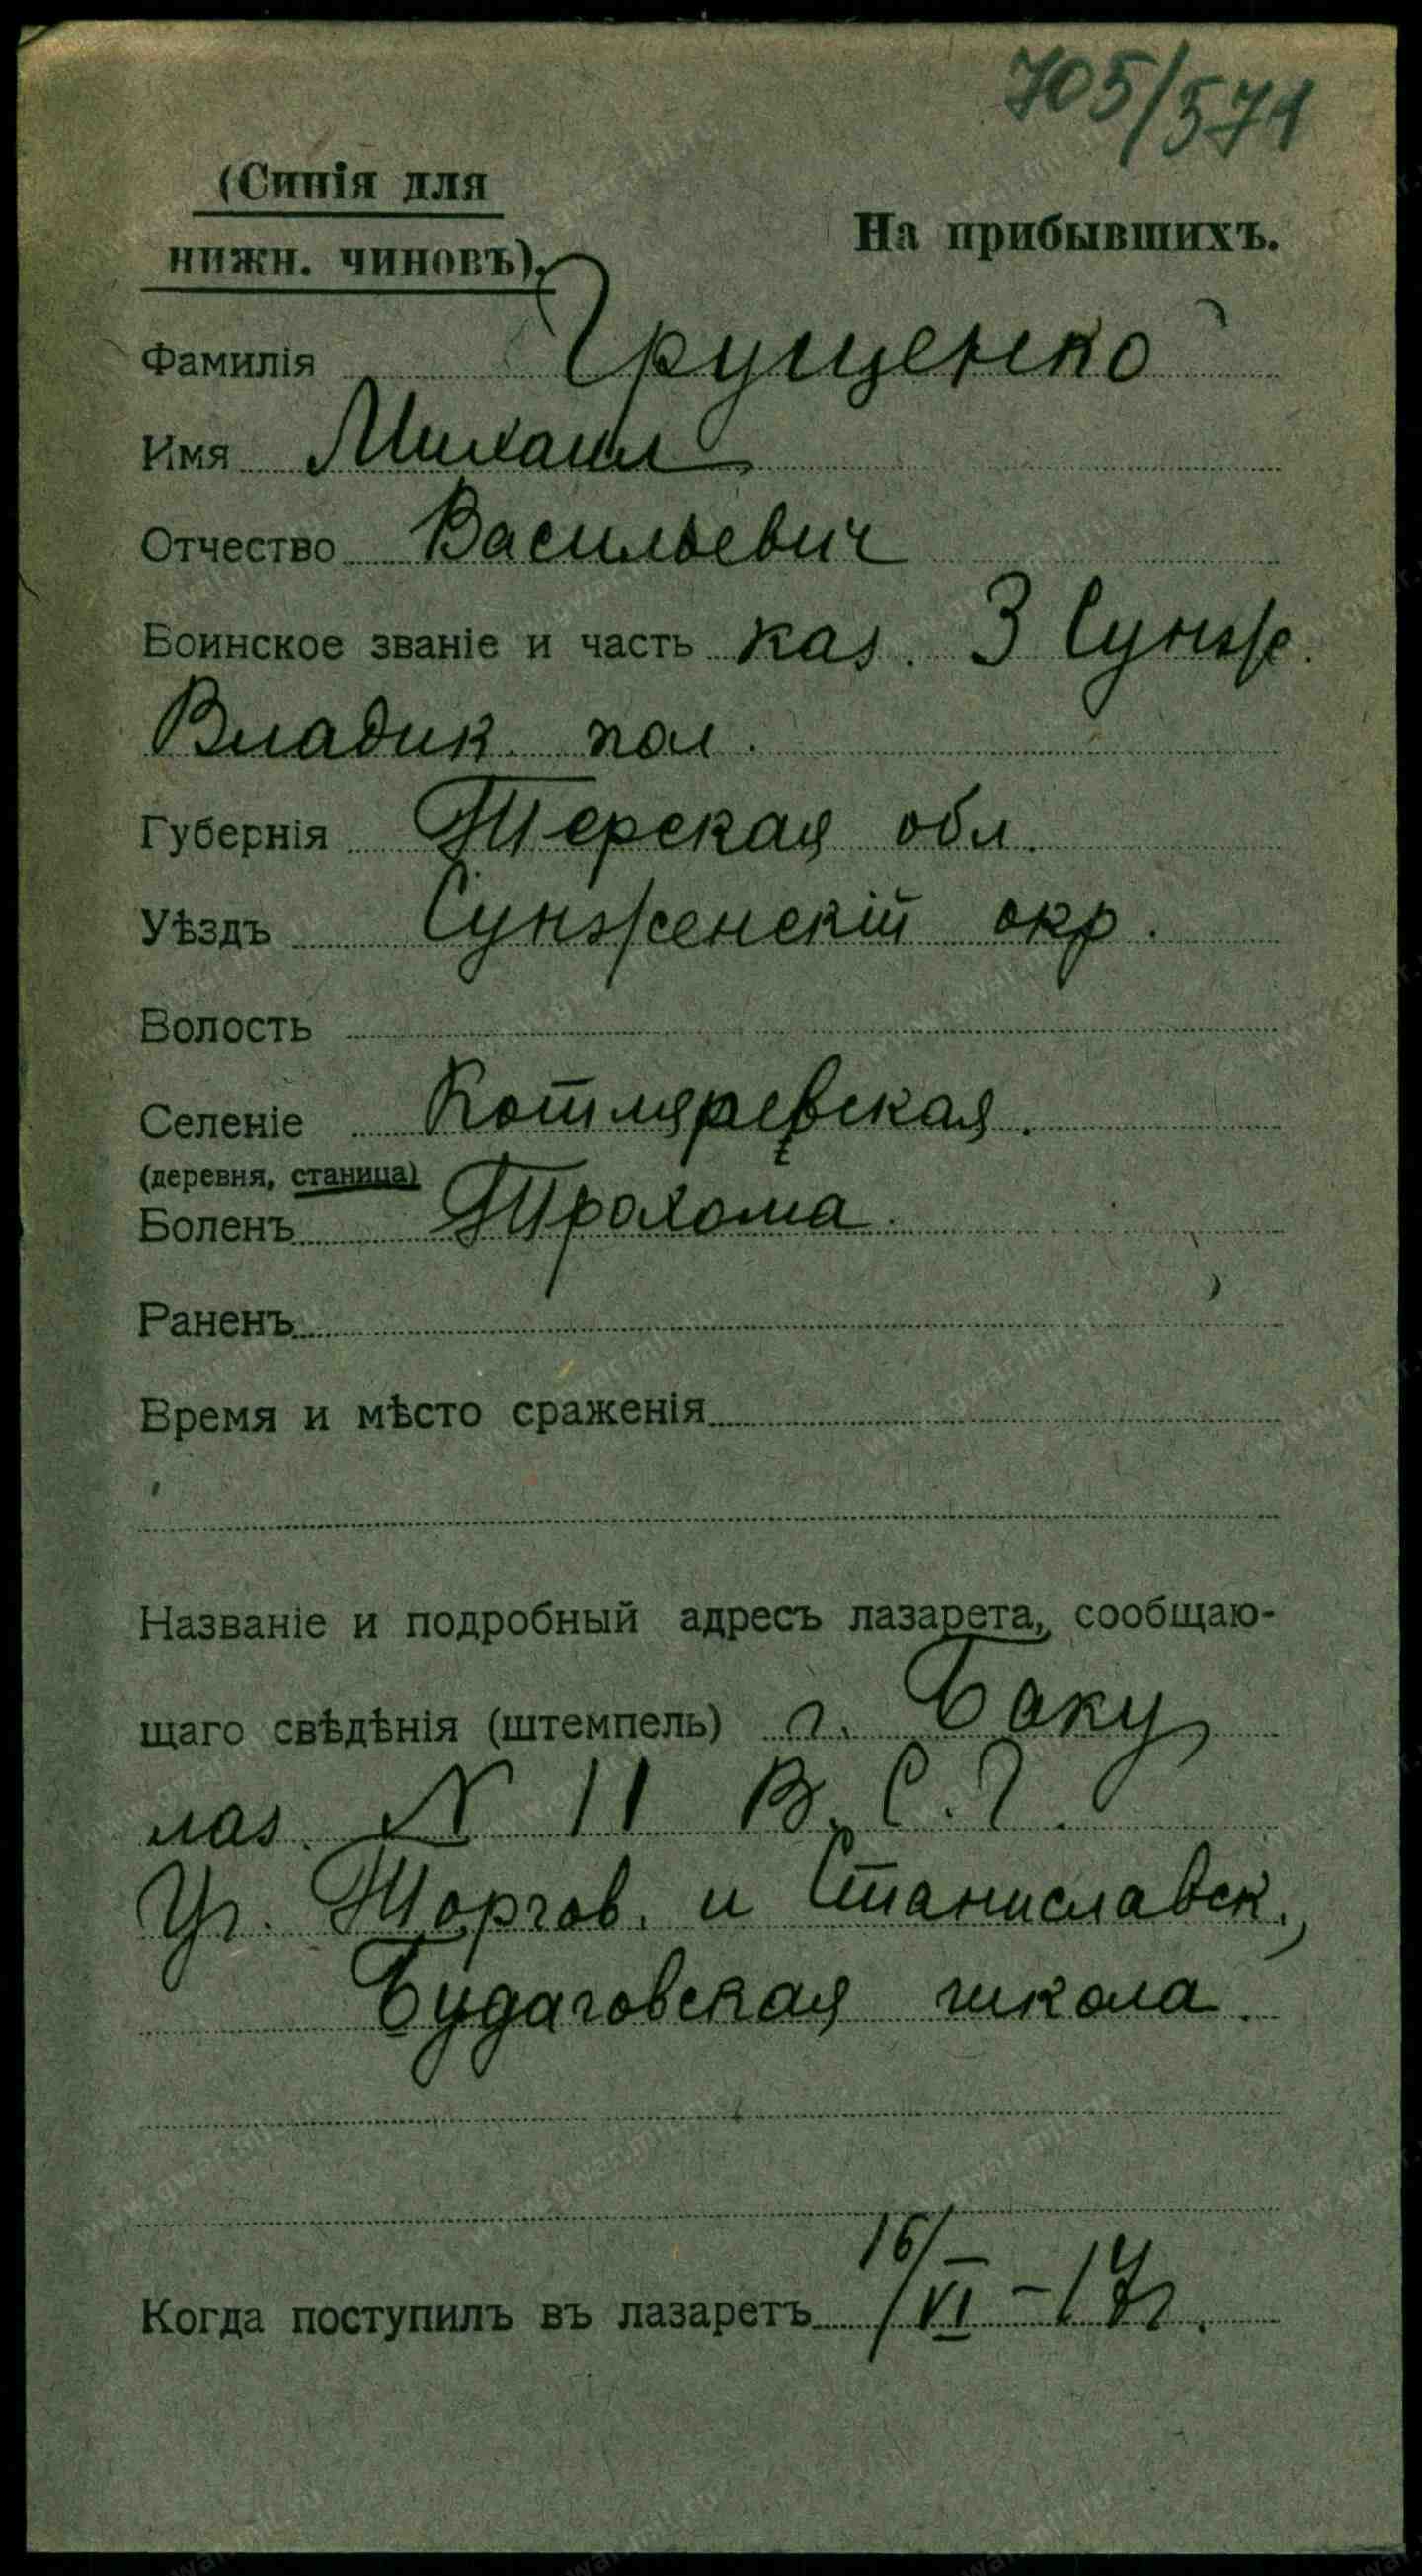 705/571
(Синія для
нижн. чиновъ).
На прибывшихъ.
Фамилія Грущенко
Имя Михаил
Отчество Васильевич
Воинское званіе и часть каз. 3 Сунж.
Владик. пол.
Губернія Терская обл.
Уѣздъ Сунженскій окр.
Волость
Селеніе Котляревская.
(деревня, станица)
Боленъ Трахома.
Раненъ
Время и мѣсто сраженія
Названіе и подробный адресъ лазарета, сообщаю-
щаго свѣдѣнія (штемпель) г. Баку
лаз. N 11 В. С. Г.
Уг. Торгов. и Станиславск.,
Будаговская школа.
Когда поступилъ въ лазаретъ 16/VI - 17 г.